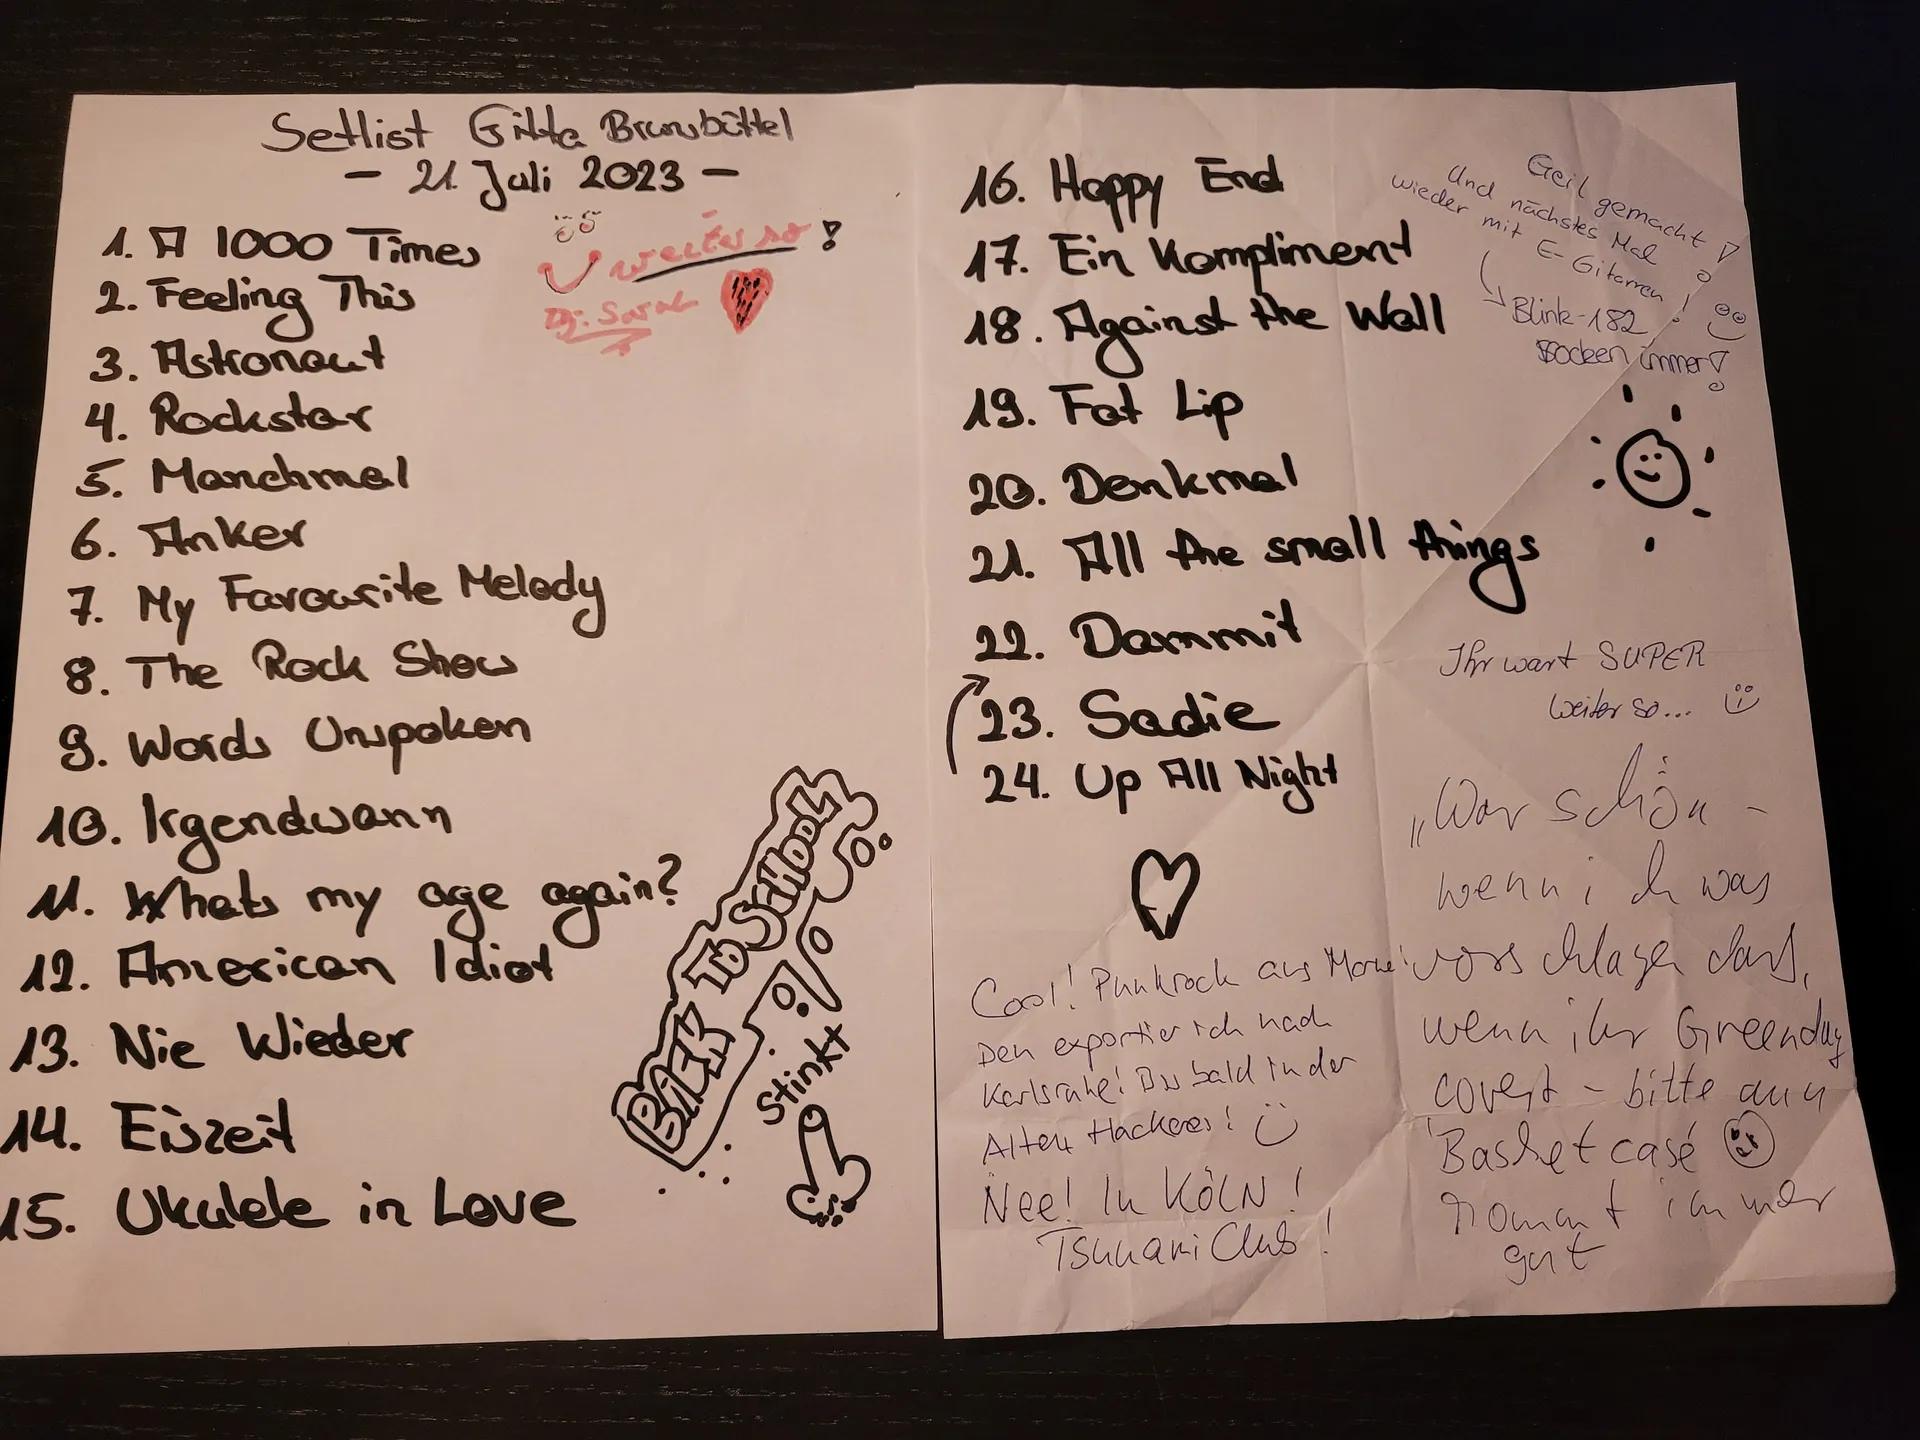 Setlist Gitta Brunsbüttel
- 21. Juli 2023 -
1. A 1000 Times
2. Feeling This
3. Astronaut
4. Rockstar
5. Manchmal
6. Anker
7. My Favourite Melody
8. The Rock Show
9. Words Unspoken
10. Irgendwann
11. Whats my age again?
12. American Idiot
13. Nie Wieder
14. Eiszeit
15. Ukulele in Love
weiter so!
Sarah
BACK TO SCHOOL
Stinkt
16. Happy End
17. Ein Kompliment
18. Against the Wall
19. Fat Lip
20. Denkmal
21. All the small things
22. Dammit
23. Sadie
24. Up All Night
Geil gemacht!
Und nächstes Mal
wieder mit E-Gitarren!
Blink-182
socken immer!
Ihr wart SUPER
weiter so...
Cool! Punkrock aus
Den exportier ich nach
Karlsruhe! Bis bald in der
Alten Hackerei!
Nee! In KÖLN!
Tsunami Club!
"War schön -
wenn ich was
vorschlagen darf,
wenn ihr Greenday
covert - bitte auch
'Basket case'
kommt immer
gut